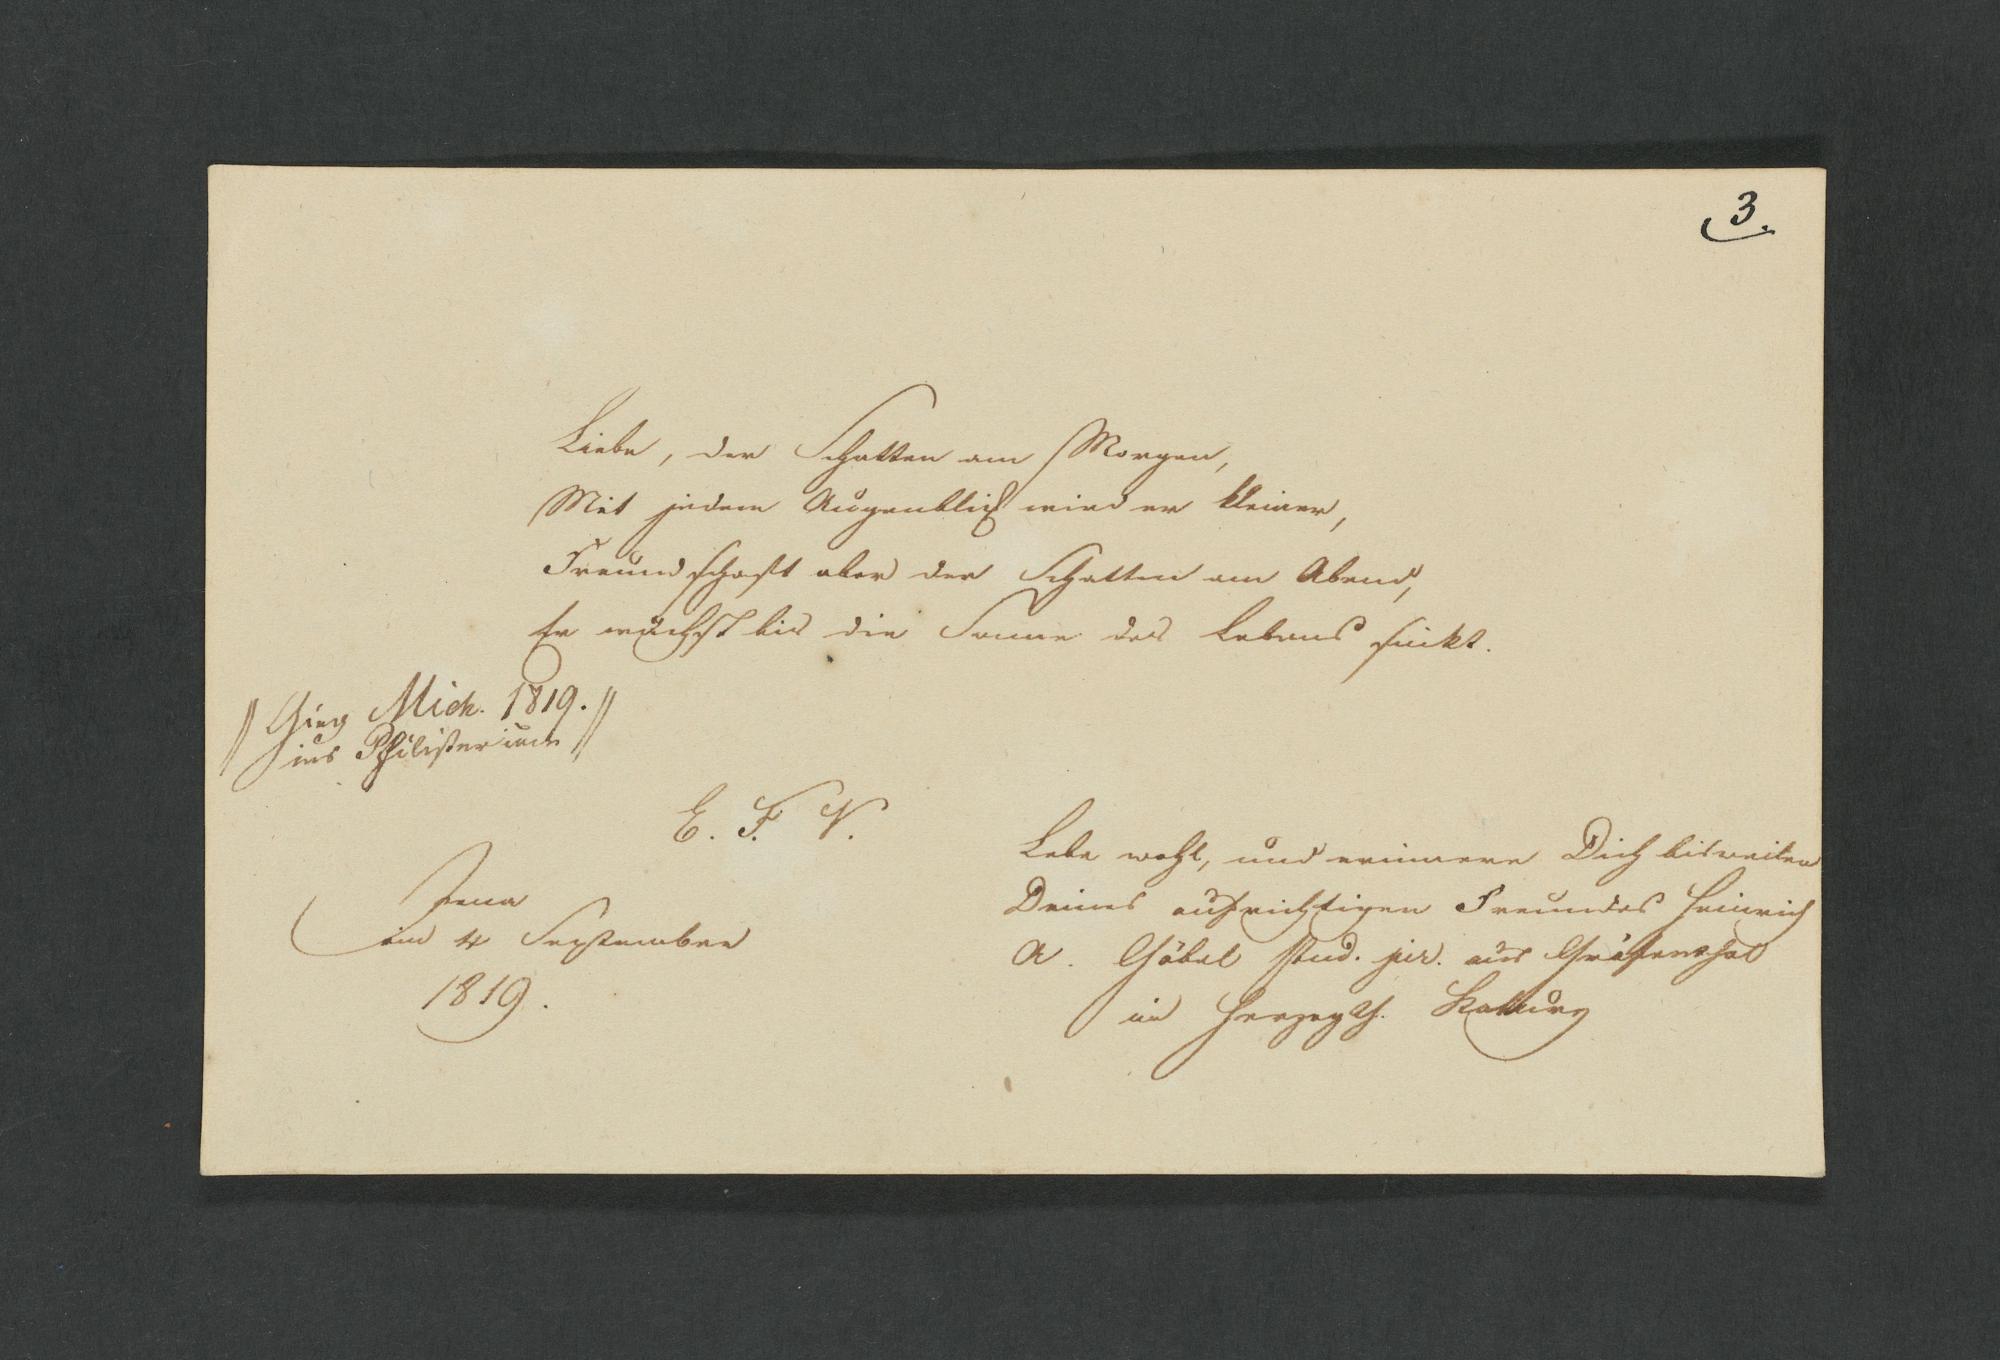 3.
Liebe, der Schatten am Morgen,
Mit jedem Augenblick wird er kleiner,
Freundschaft aber der Schatten am Abend,
Er wächst bis die Sonne des Lebens sinkt.
// Ging Mich. 1819. //
ins Philisterium
E. F. V.
Jena
im 4 September
1819.
Lebe wohl, und erinnere Dich bisweilen
Deines aufrichtigen Freundes Heinrich
A. Göbel stud. jur. aus Gräfenthal
im Herzogth. Koburg